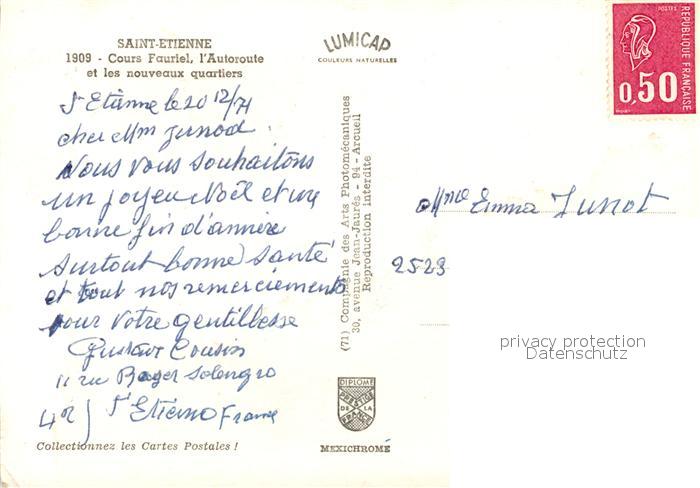 SAINT-ETIENNE
1909 - Cours Fauriel, l'Autoroute
et les nouveaux quartiers
LUMICAP
COULEURS NATURELLES
POSTES
RÉPUBLIQUE FRANÇAISE
0,50
St Etienne le 20 12/71
cher Mm
Nous vous souhaitons
un joyeu Noël et une
bonne fin d'année
surtout bonne santé
et tout nos remerciements
pour votre gentillesse
Gustave Cousin
11 rue Roger Salengro
42 St Etienne France
Collectionnez les Cartes Postales !
(71) Compagnie des Arts Photomécaniques
30, avenue Jean-Jaurès - 94 - Arcueil
Reproduction interdite
DIPLOME
PRESTIGE
DE LA
FRANCE
MEXICHROME
Mme Emma Junot
2523
privacy protection
Datenschutz